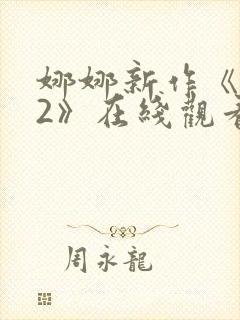 娜娜新作《
2》在綫觀看
周永龍